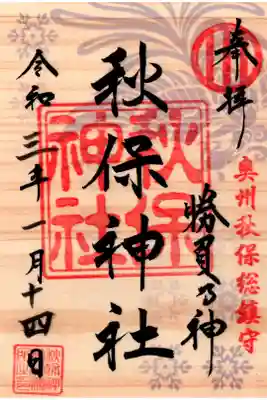 奉拝
奥州秋保総鎮守
勝負乃神
秋保神社
秋保神社
令和三年一月十四日